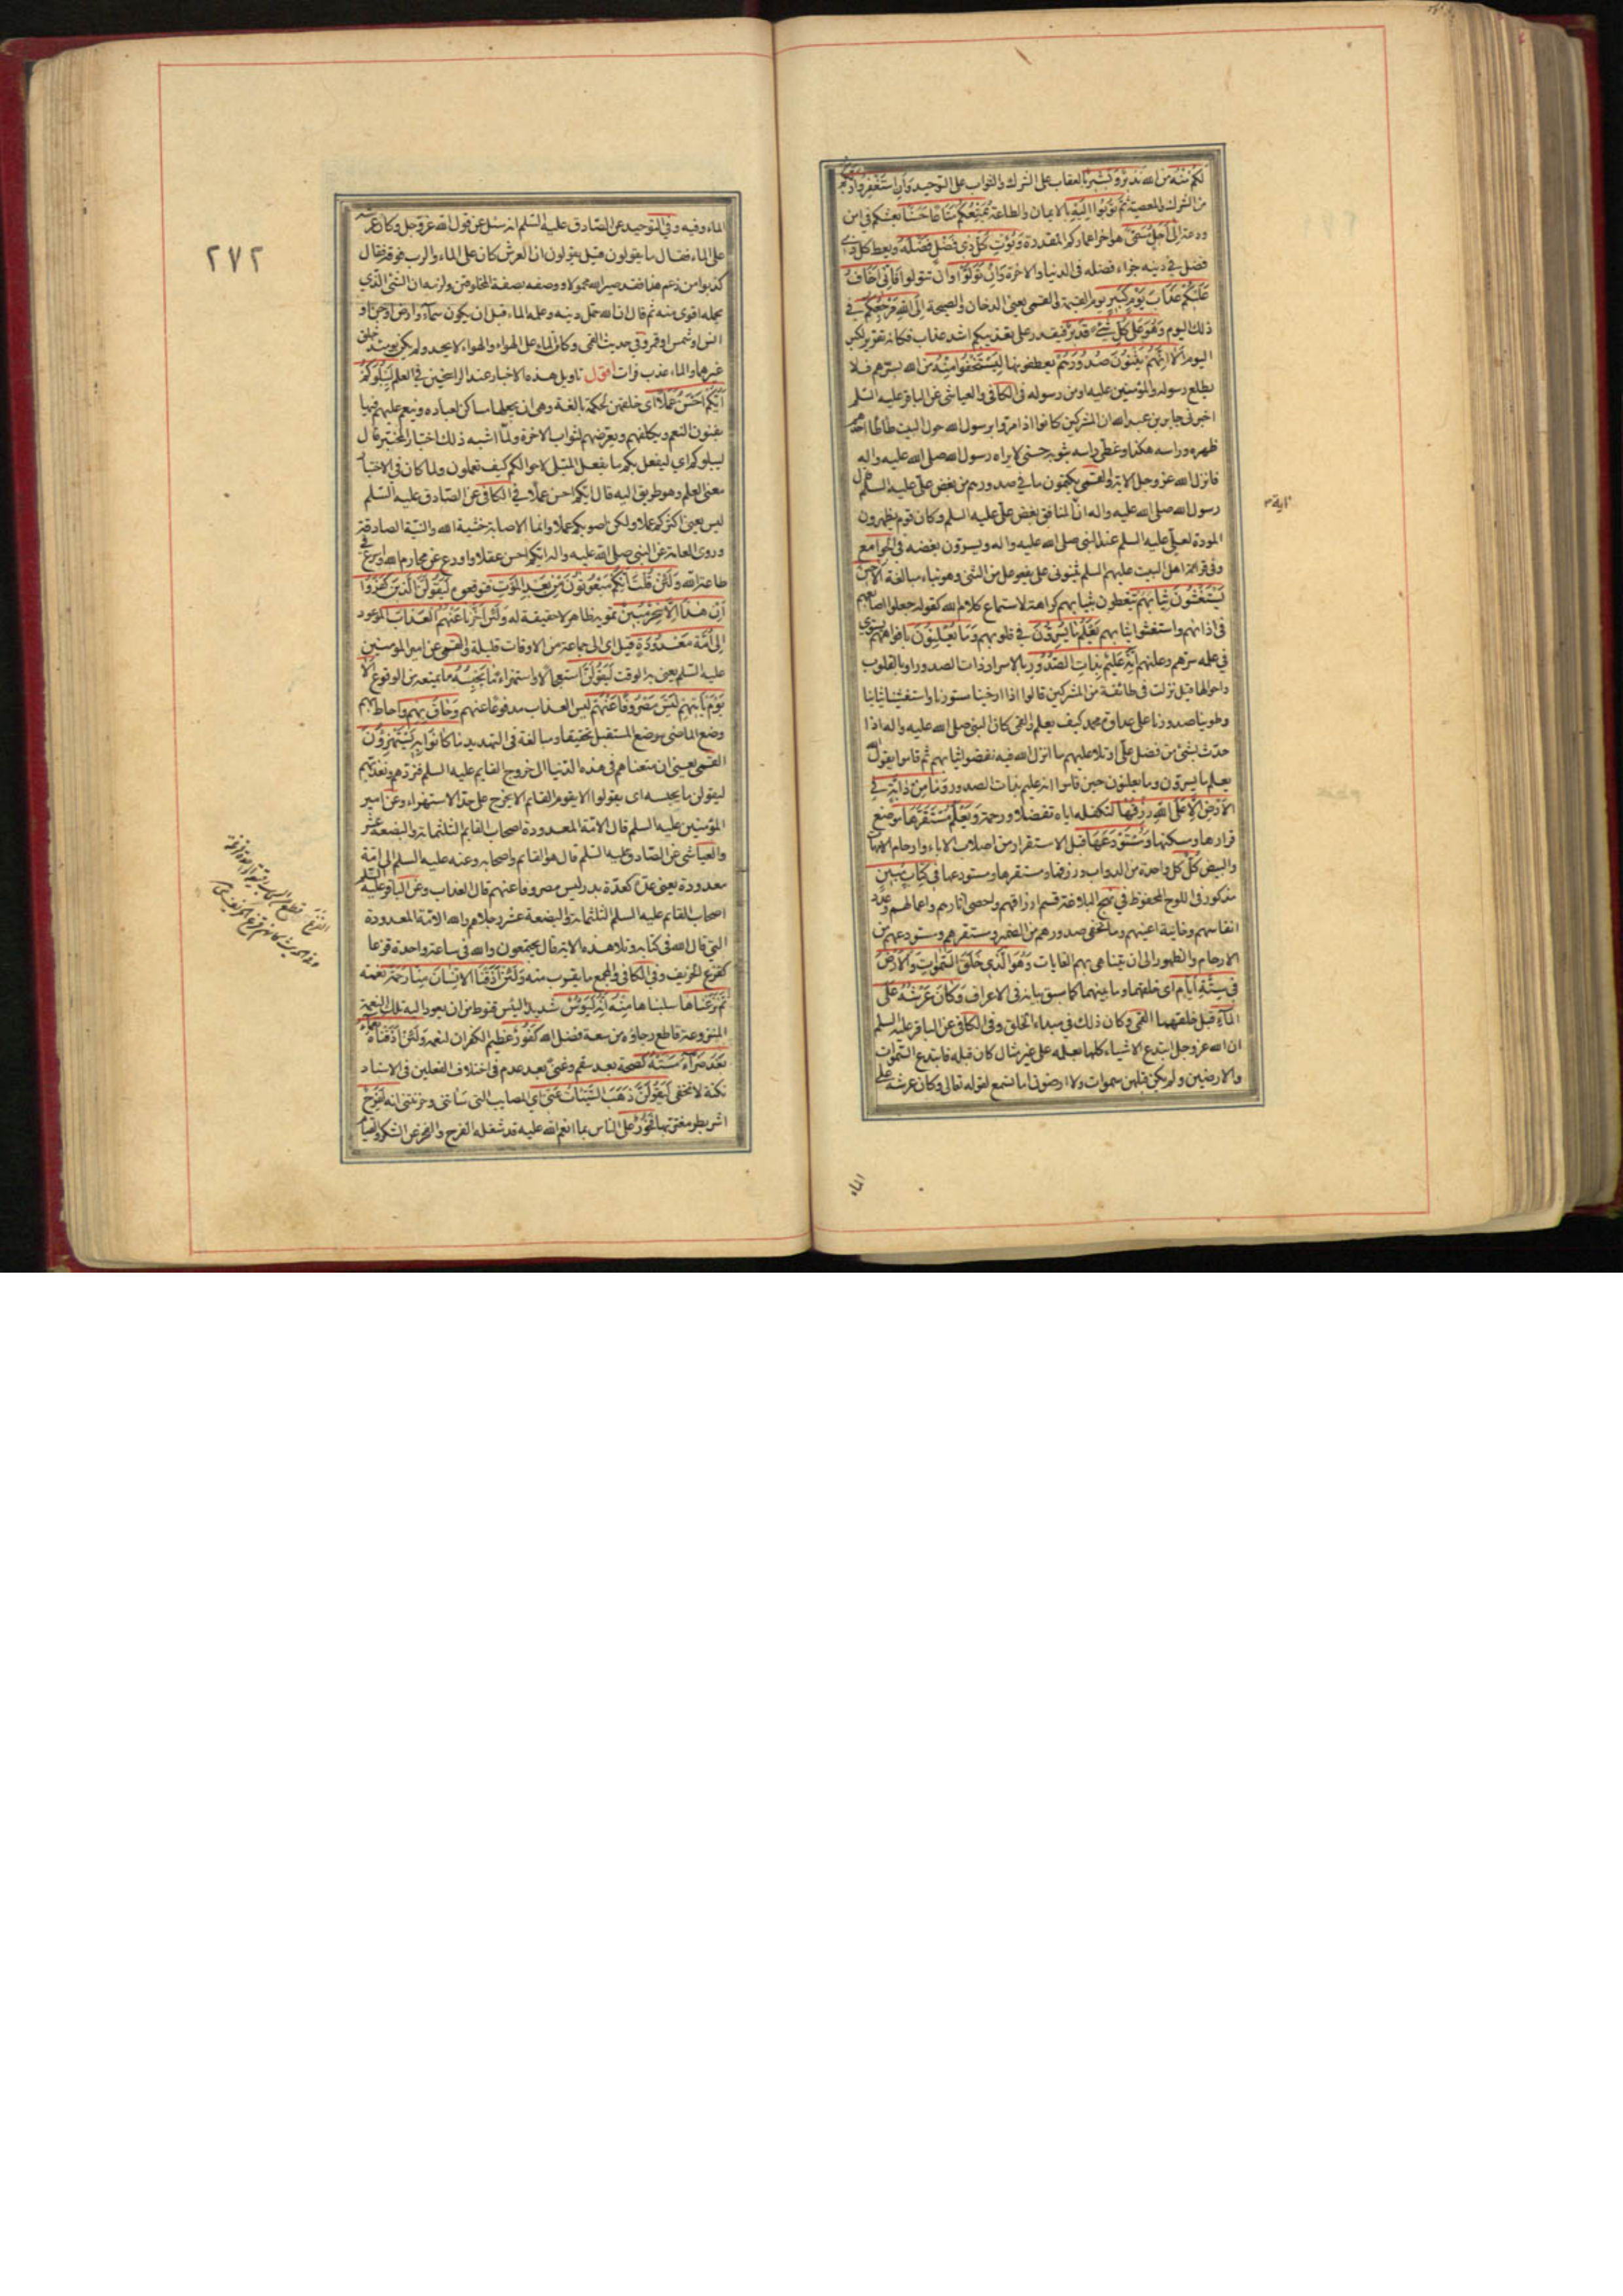 لكم منه من الله نذير وبشير بالعقاب على الشرك والثواب على التوحيد وان استغفروا ربكم
من الشرك والمعصية ثم توبوا اليه بالايمان والطاعة يمتعكم متاعا حسنا يعيشكم في امن
ودعة الى اجل مسمى هو اخر اعماركم المقدرة ويؤت كل ذي فضل فضله ويعط كل ذي
فضل في دينه جزاء فضله في الدنيا والاخرة وان تولوا وان تتولوا فاني اخاف
عليكم عذاب يوم كبير يوم القيمة والقمي يعني الدخان والصيحة الى الله مرجعكم في
ذلك اليوم وهو على كل شيء قدير فيقدر على تعذيبكم اشد عذاب فكانه تقرير لكبر
اليوم الا انهم يثنون صدورهم يعطفونها ليستخفوا منه من الله بسرهم فلا
يطلع رسوله والمؤمنين عليه او من رسوله في الكافي والعياشي عن الباقر عليه السلم
اخبرني جابر بن عبد الله ان المشركين كانوا اذا مروا برسول الله حول البيت طاطا احدهم
ظهره وراسه هكذا وغطى راسه بثوبه حتى لا يراه رسول الله صلى الله عليه واله
فانزل الله عز وجل الاية والقمي يكتمون ما في صدورهم من بغض علي عليه السلم قال
رسول الله صلى الله عليه واله ان اية المنافق بغض علي عليه السلم وكان قوم يظهرون
المودة لعلي عليه السلم عند النبي صلى الله عليه واله ويسرون بغضه في الجوامع
وفي قراءة اهل البيت عليهم السلم يثنوني على يفعوعل من الثني وهو بناء مبالغة الا حين
يستغشون ثيابهم يتغطون بثيابهم كراهة لاستماع كلام الله كقوله جعلوا اصابعهم
في اذانهم واستغشوا ثيابهم يعلم ما يسرون في قلوبهم وما يعلنون بافواههم يستوي
في علمه سرهم وعلنهم انه عليم بذات الصدور بالاسرار ذات الصدور او بالقلوب
واحوالها قيل نزلت في طائفة من المشركين قالوا اذا ارخينا ستورنا واستغشينا ثيابنا
وطوينا صدورنا على عداوة محمد كيف يعلم والقمي كان النبي صلى الله عليه واله اذا
حدث بشئ من فضل علي او تلا عليهم ما انزل الله فيه نفضوا ثيابهم ثم قاموا يقول الله
يعلم ما يسرون وما يعلنون حين قاموا انه عليم بذات الصدور وما من دابة في
الارض الا على الله رزقها لتكفله اياه تفضلا ورحمة ويعلم مستقرها موضع
قرارها ومسكنها ومستودعها قبل الاستقرار من اصلاب الاباء وارحام الامهات
والبيض كل كل واحدة من الدواب ورزقها ومستقرها ومستودعها في كتاب مبين
مذكور في اللوح المحفوظ في نهج البلاغة قسم ارزاقهم واحصى اثارهم واعمالهم وعدد
انفاسهم وخائنة اعينهم وما تخفي صدورهم من الضمير ومستقرهم ومستودعهم من
الارحام والظهور الى ان تتناهى بهم الغايات وهو الذي خلق السموات والارض
في ستة ايام اي خلقهما وما بينهما كما سبق بيانه في الاعراف وكان عرشه على
الماء قبل خلقهما القمي وكان ذلك في مبداء الخلق وفي الكافي عن الباقر عليه السلم
ان الله عز وجل ابتدع الاشياء كلها بعلمه على غير مثال كان قبله فابتدع السموات
والارضين ولم يكن قبلهن سموات ولا ارضون اما تسمع لقوله تعالى وكان عرشه على
الماء
٢٧٢
الماء وفيه وفي التوحيد عن الصادق عليه السلم انه سئل عن قول الله عز وجل وكان عرشه
على الماء فقال ما يقولون قيل يقولون ان العرش كان على الماء والرب فوقه فقال
كذبوا من زعم هذا فقد صير الله محمولا ووصفه بصفة المخلوقين ولزمه ان الشئ الذي
يحمله اقوى منه ثم قال ان الله حمل دينه وعلمه الماء قبل ان يكون سماء او ارض او جن او
انس او شمس او قمر وفي حديث القمي وكان الماء على الهواء والهواء لا يحد ولم يكن يومئذ خلق
غيرهما والماء عذب فرات اقول تاويل هذه الاخبار عند الراسخين في العلم ليبلوكم
ايكم احسن عملا اي خلقهن لحكمة بالغة وهي ان يجعلها مساكن لعباده وينعم عليهم فيها
بفنون النعم ويكلفهم ويعرضهم لثواب الاخرة ولما اشبه ذلك اختبار المختبر قال
ليبلوكم اي ليفعل بكم ما يفعل المبتلي لاحوالكم كيف تعملون ولما كان في الاختبار
معنى العلم وهو طريق اليه قال ايكم احسن عملا في الكافي عن الصادق عليه السلم
ليس يعني اكثركم عملا ولكن اصوبكم عملا وانما الاصابة خشية الله والنية الصادقة
وروى العامة عن النبي صلى الله عليه واله ايكم احسن عقلا واورع عن محارم الله واسرع في
طاعة الله ولئن قلت انكم مبعوثون من بعد الموت فتوقعوه ليقولن الذين كفروا
ان هذا الا سحر مبين تمويه ظاهر لا حقيقة له ولئن اخرنا عنهم العذاب الموعود
الى امة معدودة قيل اي الى جماعة من الاوقات قليلة والقمي عن امير المؤمنين
عليه السلم يعني به الوقت ليقولن استعجالا واستهزاء ما يحبسه ما يمنعه من الوقوع الا
يوم ياتيهم ليس مصروفا عنهم ليس العذاب مدفوعا عنهم وحاق بهم واحاط بهم
وضع الماضي موضع المستقبل تحقيقا ومبالغة في التهديد ما كانوا به يستهزؤن
القمي يعني ان متعناهم في هذه الدنيا الى خروج القايم عليه السلم فنردهم ونعذبهم
ليقولن ما يحبسه اي يقولوا الا يقوم القايم الا يخرج على حد الاستهزاء وعن امير
المؤمنين عليه السلم قال الامة المعدودة اصحاب القايم الثلثمائة والبضعة عشر
والعياشي عن الصادق عليه السلم قال هو القايم واصحابه وعنه عليه السلم الى امة
معدودة يعني عدة كعدة بدر ليس مصروفا عنهم قال العذاب وعن الباقر عليه السلم
اصحاب القايم عليه السلم الثلثمائة والبضعة عشر رجلا هم والله الامة المعدودة
التي قال الله في كتابه وتلا هذه الاية قال يجتمعون والله في ساعة واحدة قزعا
كقزع الخريف وفي الكافي والمجمع ما يقرب منه ولئن اذقنا الانسان منا رحمة نعمة
ثم نزعناها سلبناها منه انه ليؤس شديد الياس قنوط من ان يعود اليه تلك النعمة
المنزوعة قاطع رجاؤه من سعة فضل الله كفور عظيم الكفران لنعمه ولئن اذقناه نعماء
بعد ضراء مسته كصحة بعد سقم وغنى بعد عدم في اختلاف الفعلين في الاسناد
نكتة لا تخفى ليقولن ذهب السيئات عني اي المصايب التي سائتني وحزنتني انه لفرح
اشر بطر مغتر بها فخور على الناس بما انعم الله عليه قد شغله الفرح والفخر عن الشكر والقيام